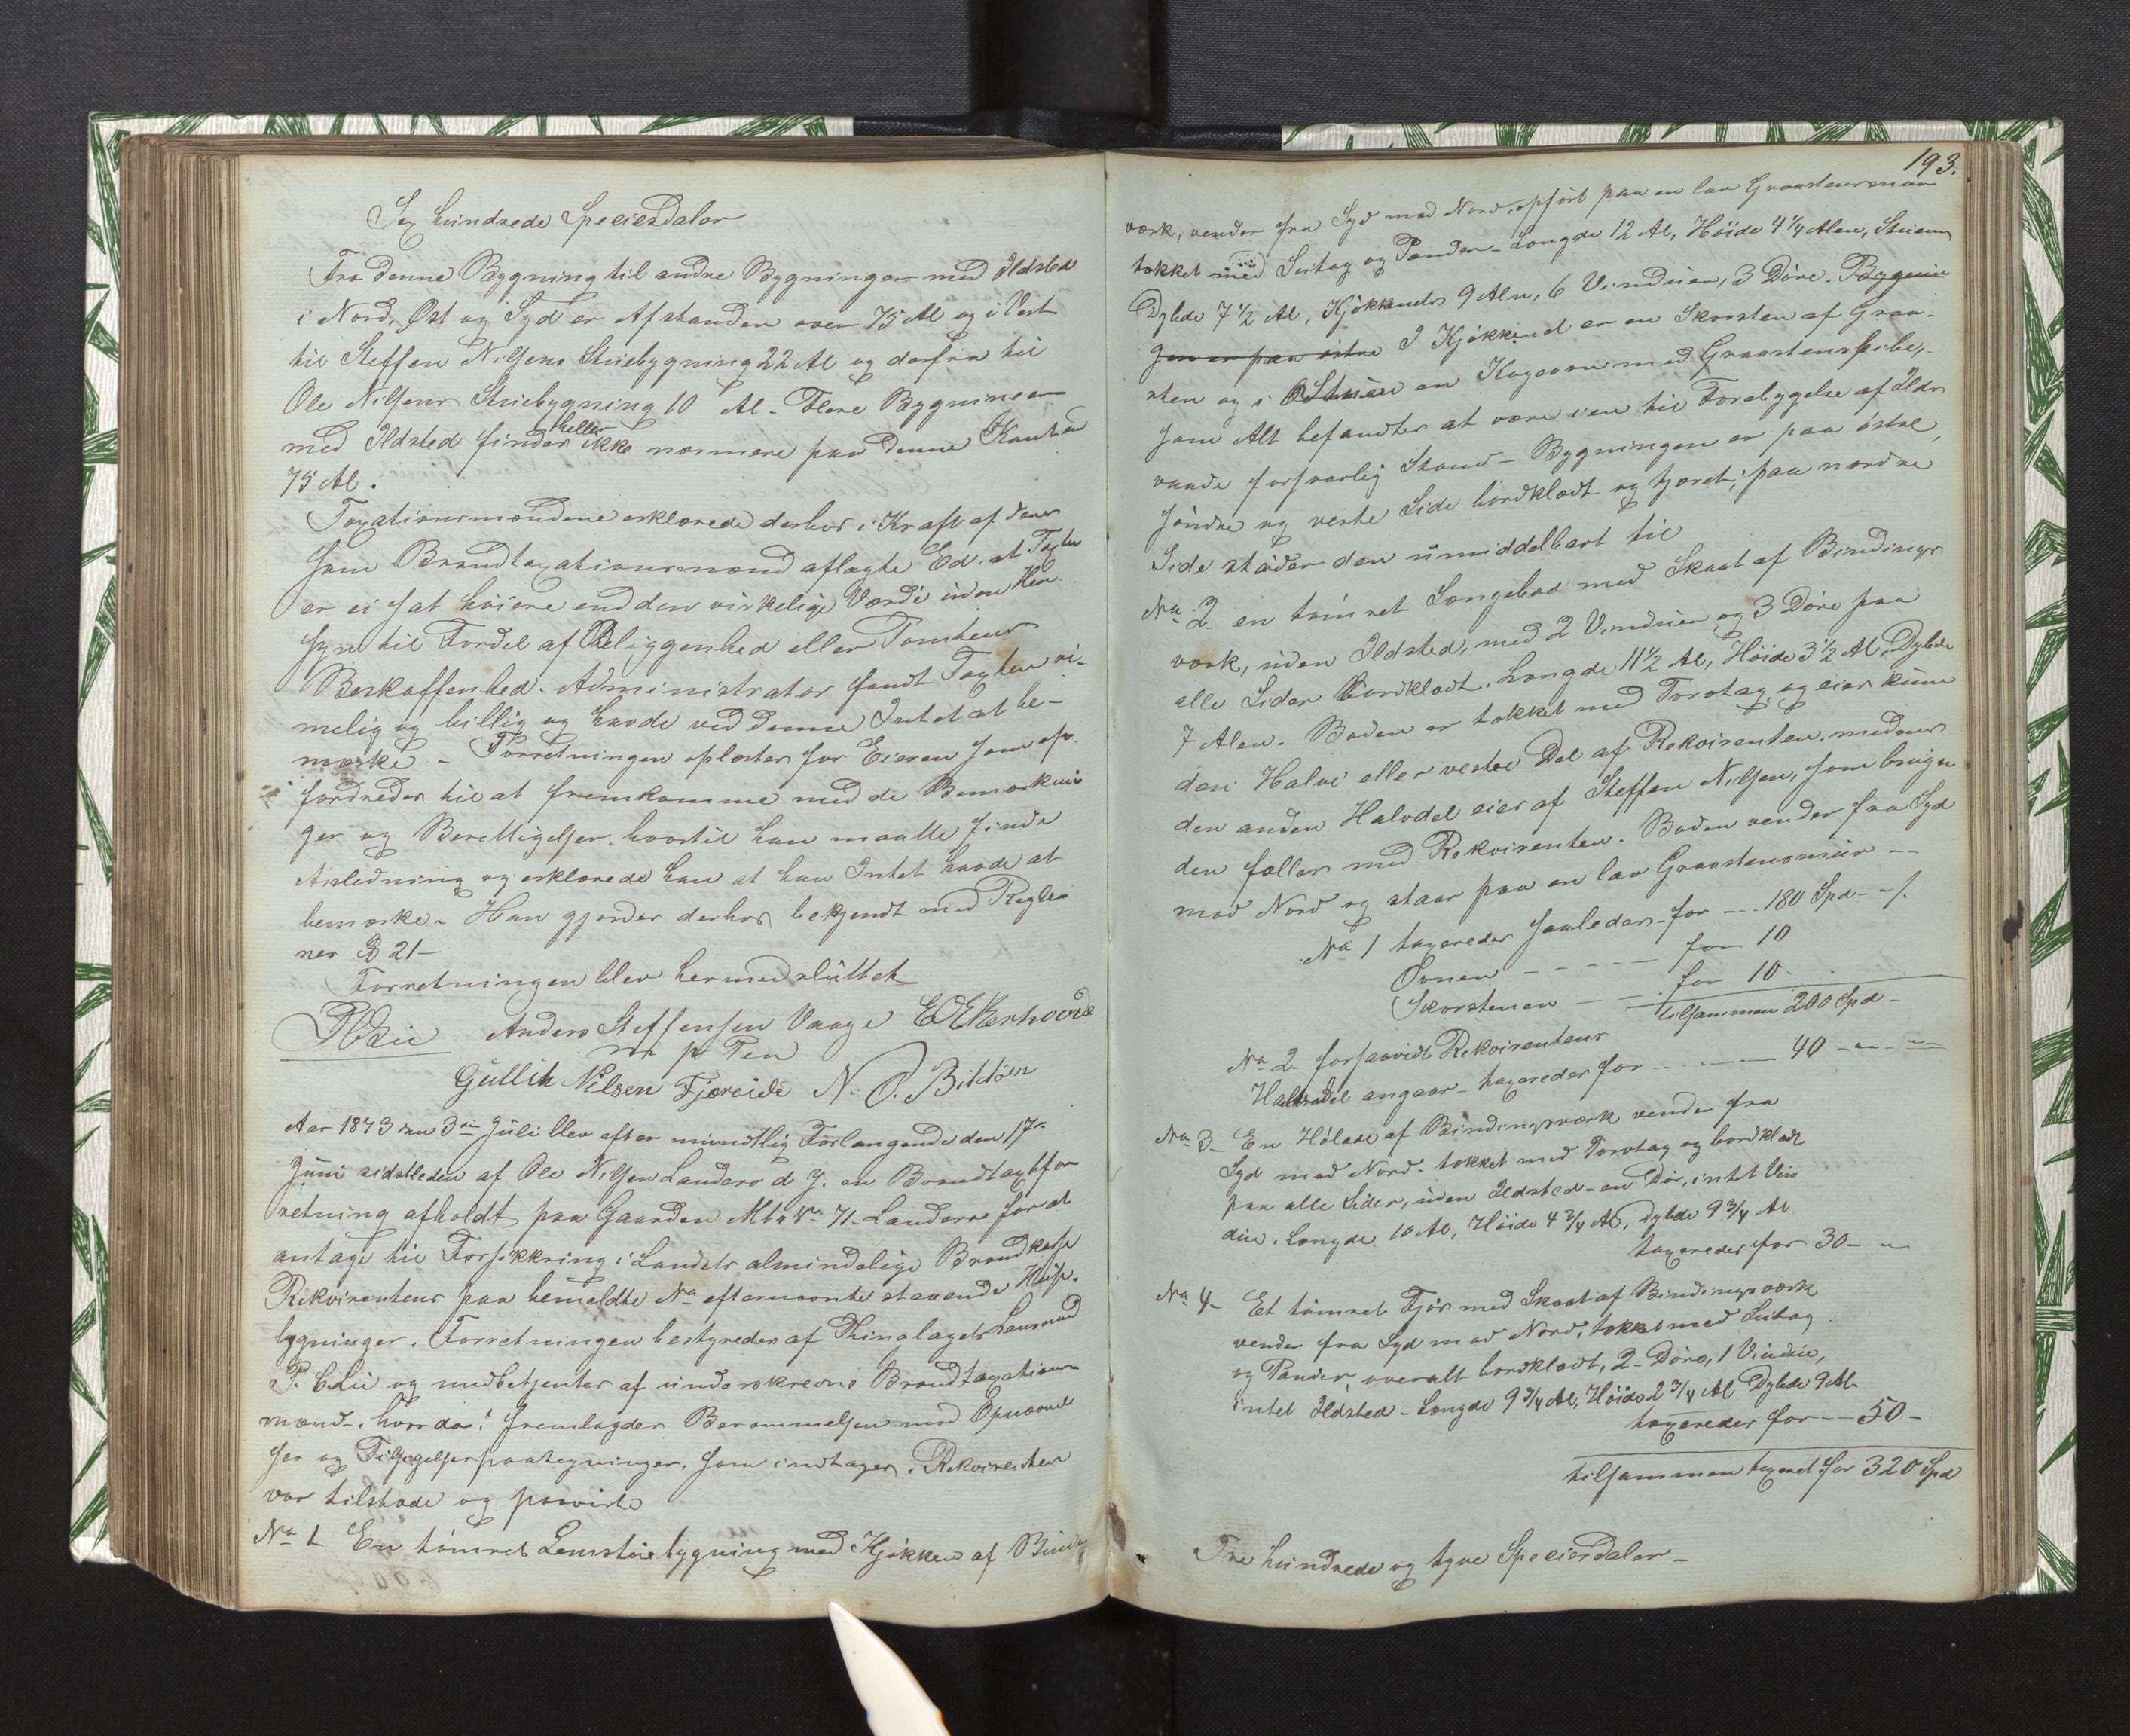 Sex hundrede Speciesdaler
Fra denne Bygning til andre Bygninger med Ildsted
i Nord, Øst og Syd er Afstanden over 75 Al og i Vest
til Steffen Nilsens Stuebygning 22 Al og derfra til
Ole Nilsens Stuebygning 10 Al - Flere Bygninger
med Ildsted findes heller ikke nærmere paa denne Kant end
75 Al.
Taxationsmændene erklærede derhos i Kraft af deres
som Brandtaxationsmænd aflagte Ed, at Taxten
er ei sat høiere end den virkelige Værdi uden Hen-
syn til Fordel af Beliggenhed eller Tomtens
Beskaffenhed. Administrator fandt Taxten ri-
melig og billig og havde ved denne Intet at be-
mærke - Forretningen oplæstes for Eieren som op-
fordredes til at fremkomme med de Bemærknin
ger og Berettigelser, hvortil han maatte finde
Anledning og erklærede han at han Intet havde at
bemærke - Han gjordes derhos bekjendt med Regler
nes § 21 -
Forretningen blev hermed sluttet
P. C. Lii Anders Steffensen Vaage E O Ekerhovd
m p Pen
Gullik Nilsen Fjæreide N. O. Bildøen
Aar 1873 den 3die Juli blev efter mundtlig Forlangende den 17de
Juni sidstleden af Ole Nilsen Landero d. y. en Brandtaxtfor
retning afholdt paa Gaarden Mtr No 71 - Landero for at
antage til Forsikkring i Landets almindelige Brandkasse
Rekvirentens paa bemeldte No efternævnte staaende Hus-
bygninger. Forretningen bestyredes af Thinglagets Lensmand
P. C. Lii og medbetjentes af underskrevne Brandtaxations
mænd - hvorda! fremlagdes Berammelsen med Opnævnel
ser og Tilsigelsespaategninger, som indtages. Rekvirenten
var tilstæde og paaviste
No 1 En tømret Lemstuebygning med Kjøkken af Bindings
193.
værk, vender fra Syd mod Nord, opført paa en lav Graastensmuur
tækket med Sutag og Pander - Længde 12 Al, Høide 4 1/4 Alen, Stuens
Dybde 7 1/2 Al, Kjøkkenets 9 Aln, 6 Vinduer, 3 Døre. Bygnin
gen er paa østre I Kjøkkenet er en Skorsten af Graa-
sten og i Stuen en Kogeovn med Graastenspibe,
som Alt befandtes at være i en til Forebyggelse af Ilds
vaade forsvarlig Stand - Bygningen er paa østre,
søndre og vestre Side bordklædt og tjæret; paa nordre
Side støder den umiddelbart til
No 2 - en tømret Sængebod med Skaat af Bindings
værk, uden Ildsted, med 2 Vinduer og 3 Døre paa
alle Sider bordklædt. Længde 11 1/2 Al, Høide 3 1/2 Al, Dybde
7 Alen. Boden er tækket med Torvtag og eies kuns
den Halve eller vestre Del af Rekvirenten, medens
den anden Halvdel eies af Steffen Nilsen, som bruger
den fælles med Rekvirenten. Boden vender fra Syd
mod Nord og staar paa en lav Graastensmuur - -
No 1 taxeredes saaledes - for - - - 180 Spd - - /.
Ovnen - - - - - for 10
Skorstenen - - - for 10 -
tilsammen 200 Spd -
No 2 - forsaavidt Rekvirentens
Halvdel angaar - taxeredes for - - - - 40 - " - "
No 3 - En Høladе af Bindingsværk vender fra
Syd mod Nord - tækket med Torvtag og bordklædt
paa alle Sider, uden Ildsted - en Dør, intet Vin
due. Længde 10 Al, Høide 4 3/4 Al, Dybde 9 3/4 Al
taxeredes for 30 - "
No 4 - Et tømret Fjøs med Skaat af Bindingsværk
vender fra Syd mod Nord, tækket med Sutag
og Pander, overalt bordklædt, 2 - Døre, 1 Vindue,
intet Ildsted - Længde 9 3/4 Al, Høide 2 3/4 Al Dybde 9 Al
taxeredes for - - 50 -
tilsammen taxeret for 320 Spd
Tre hundrede og tyve Speciesdaler -